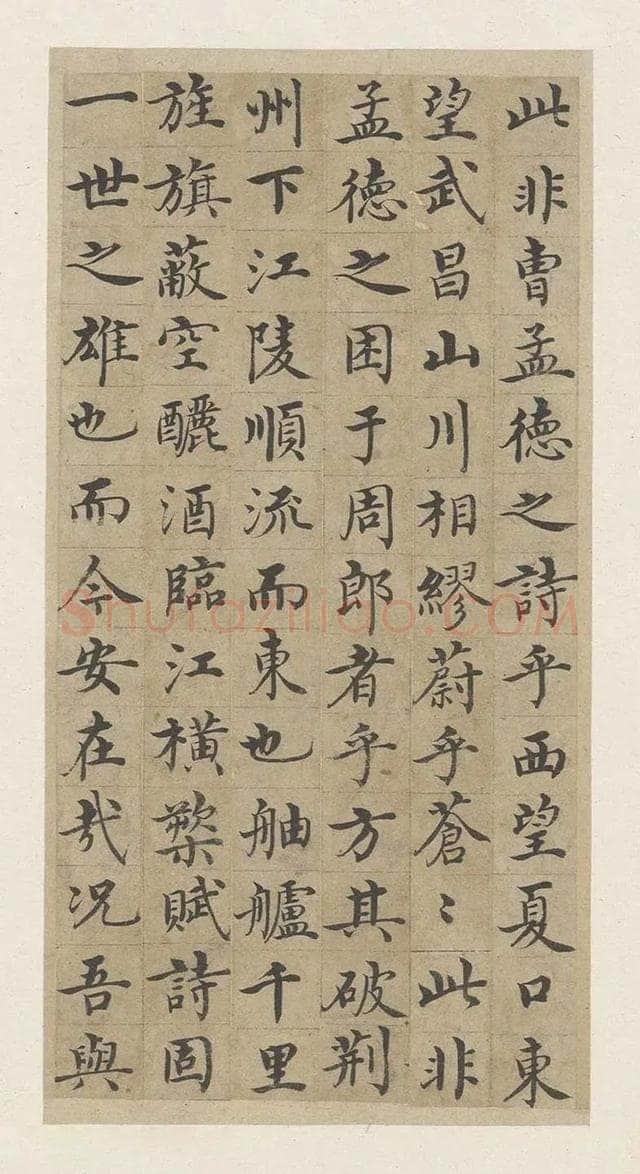 此非曹孟德之詩乎西望夏口東
望武昌山川相繆蔚乎蒼〻此非
孟德之困于周郎者乎方其破荆
州下江陵順流而東也舳艫千里
旌旗蔽空釃酒臨江橫槊賦詩固
一世之雄也而今安在哉况吾與
Shufaziliao.COM